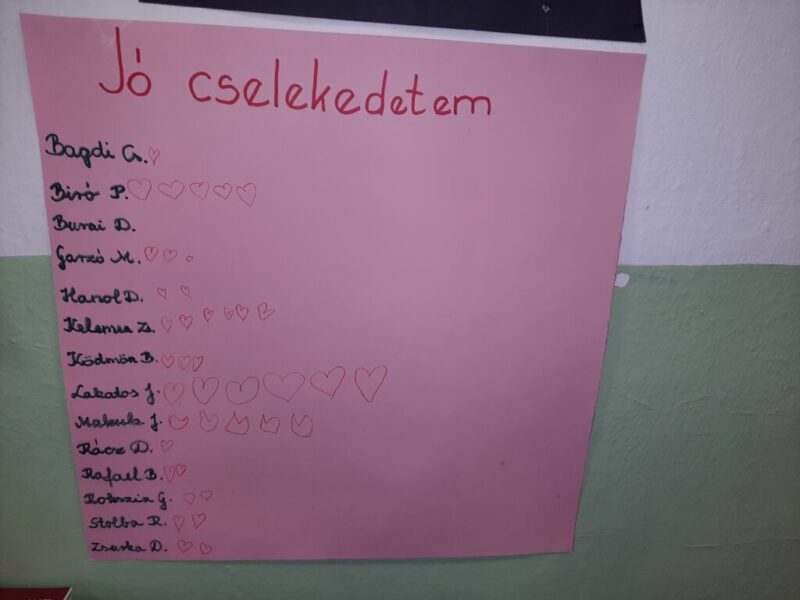 Jó cselekedetem
Bagdi Cs.
Biró P.
Burai D.
Garzó M.
Hanol D.
Kelemen Zs.
Ködmön B.
Lakatos J.
Makula J.
Rácz D.
Rafael B.
Rokszin G.
Stolba R.
Zsurka D.